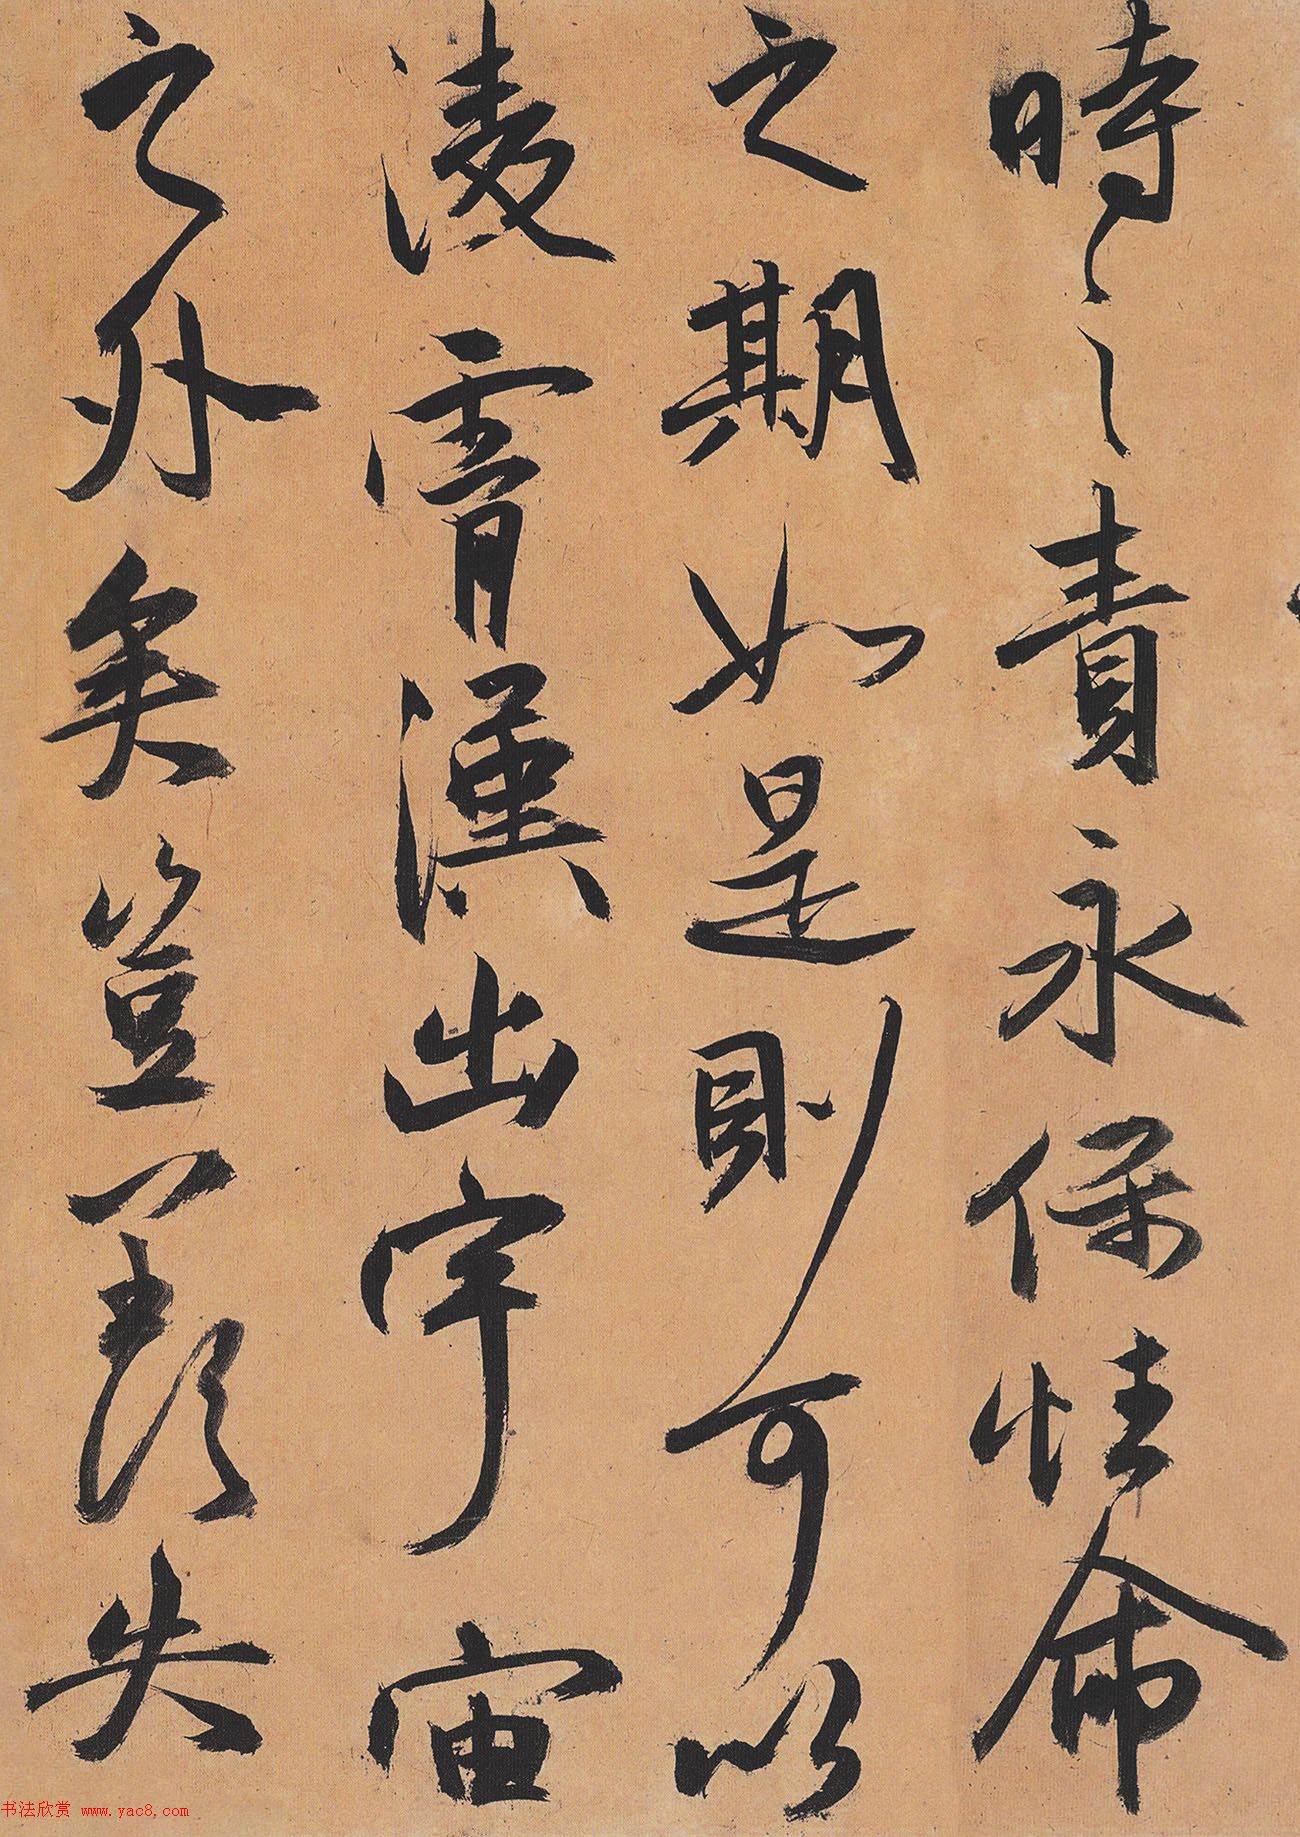 時之責永保性命
之期如是則可以
淩霄漢出宇宙
之外矣豈羡失
书法欣赏 www.yac8.com